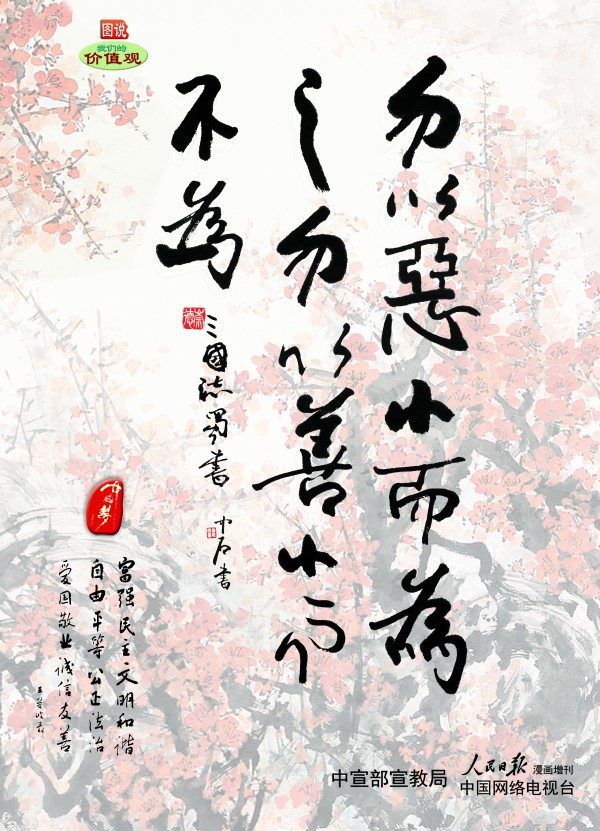 图说
我们的
价值观
勿以惡小而為
之勿以善小而
不為
三國誌蜀書
中石書
中国梦
富强民主文明和谐
自由平等公正法治
爱国敬业诚信友善
中宣部宣教局
人民日报 漫画增刊
中国网络电视台